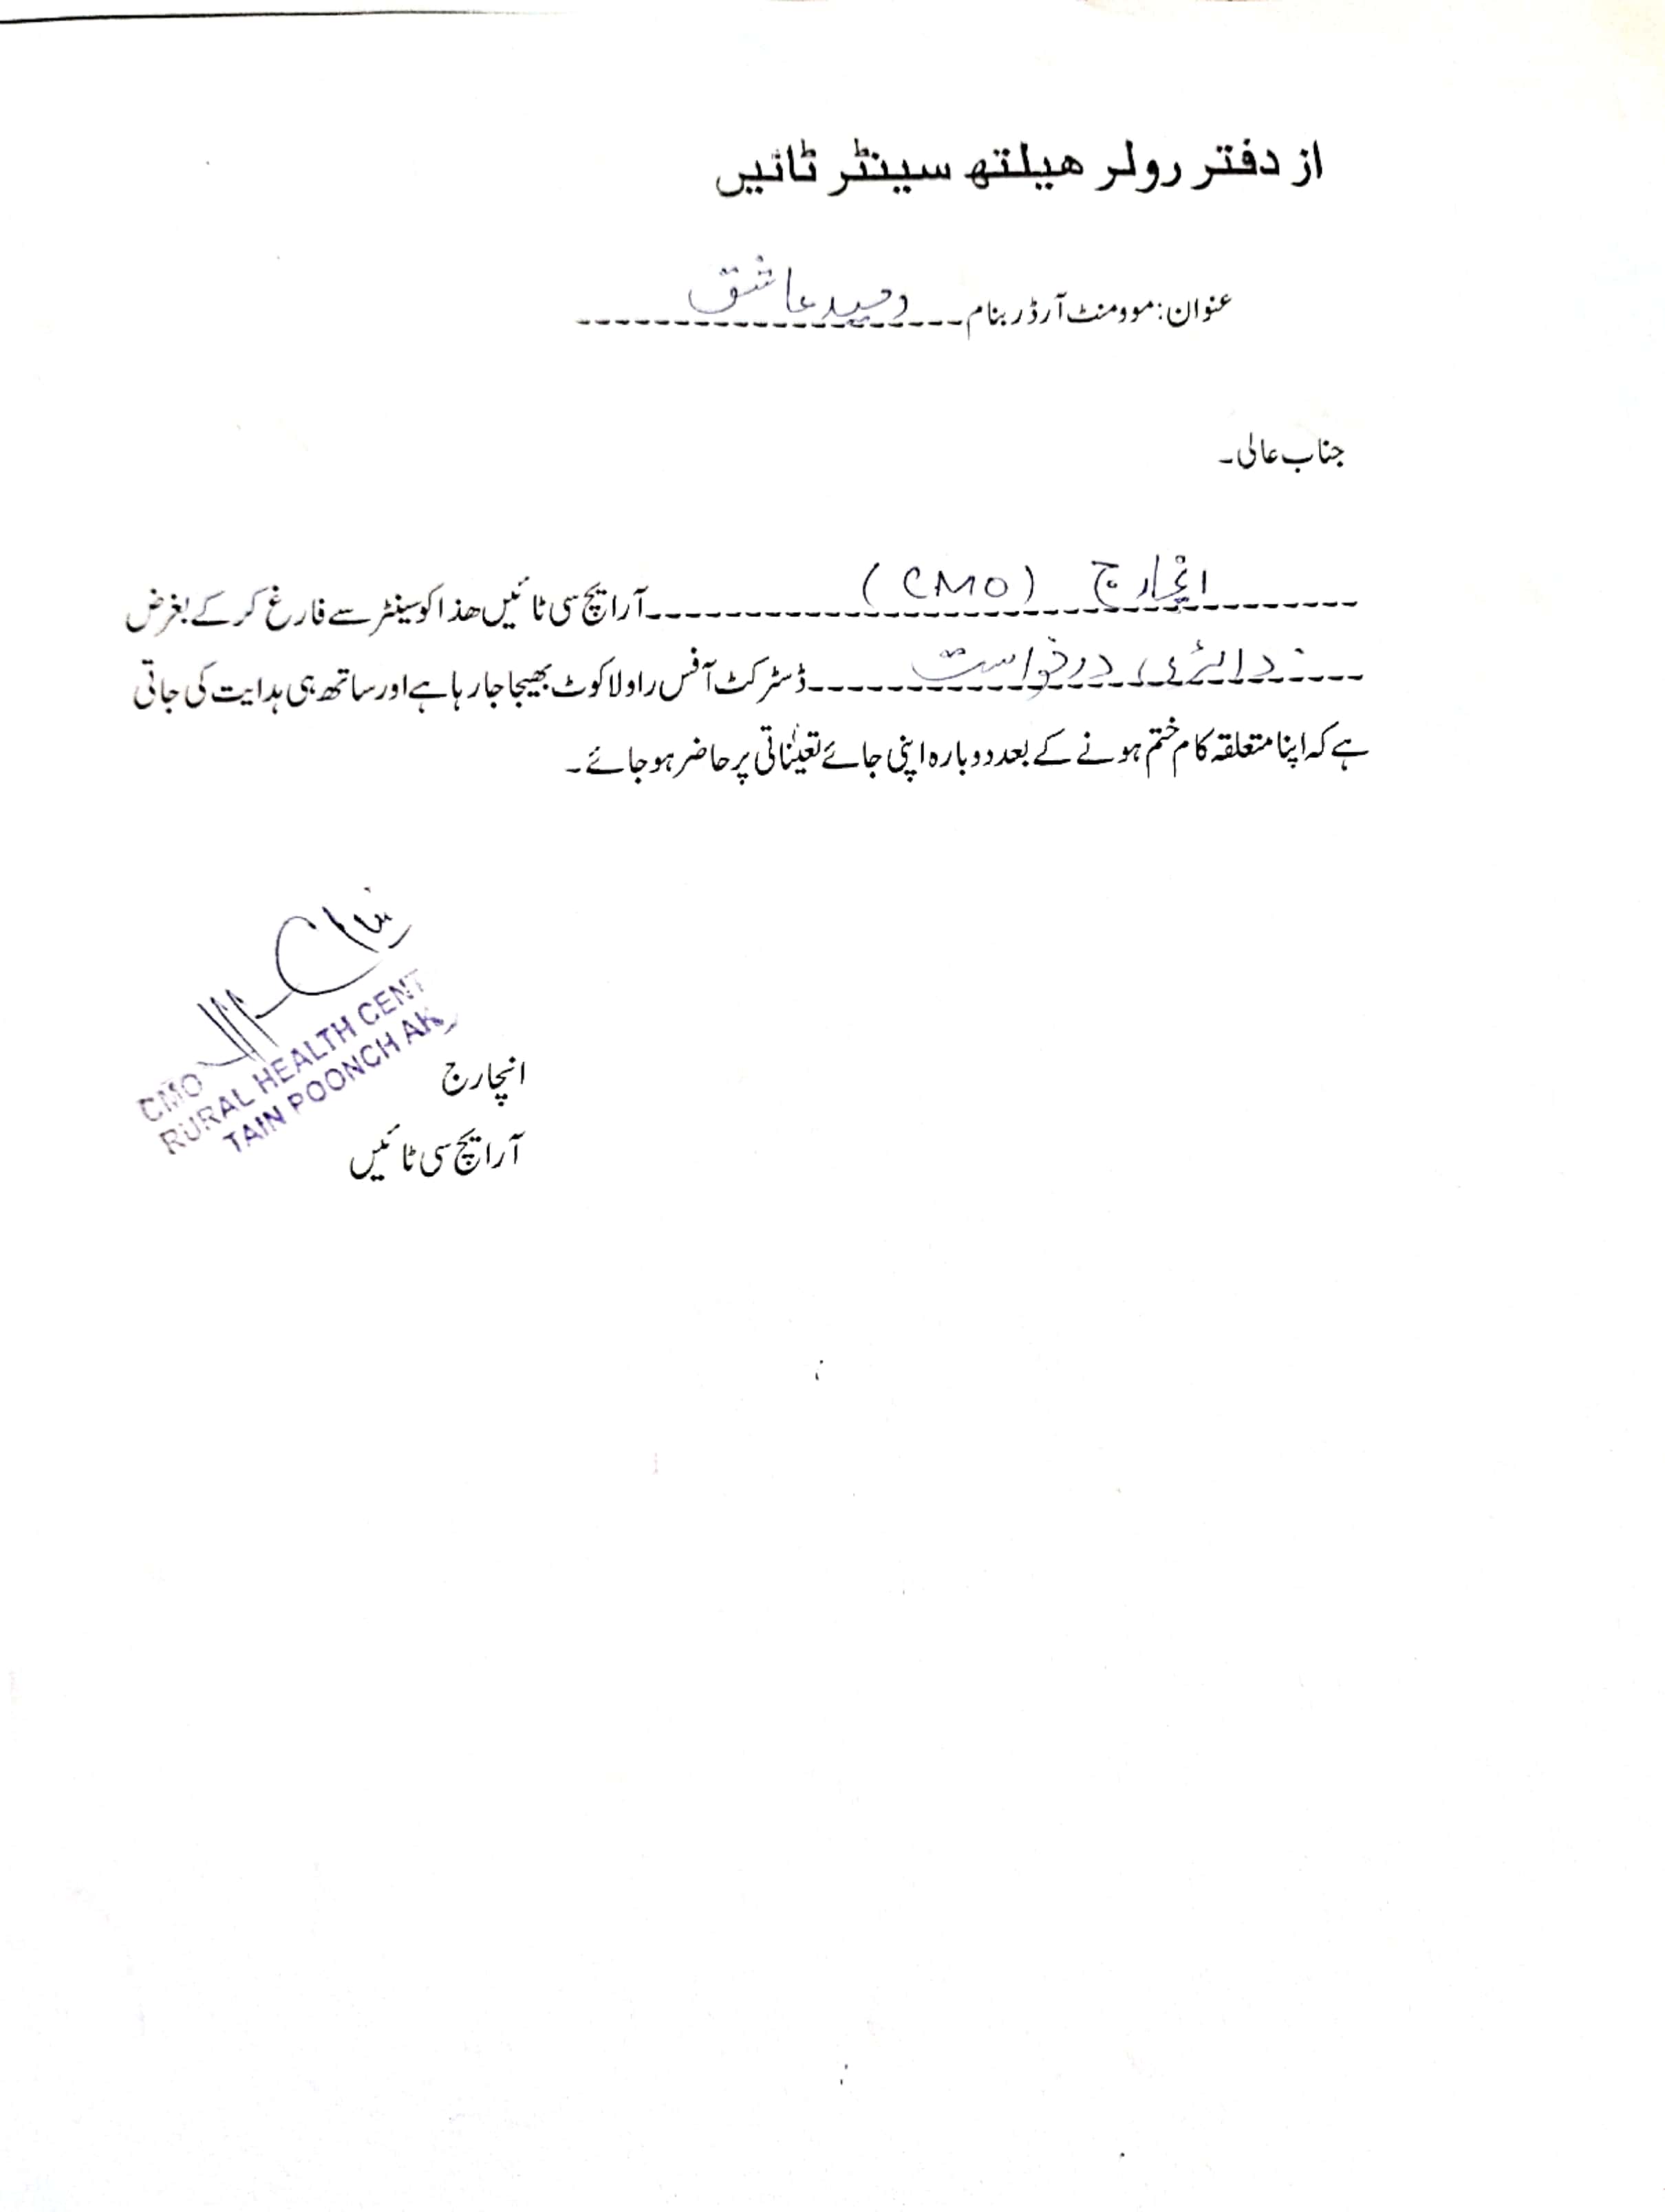 از دفتر رولر ھیلتھ سینٹر ٹائیں
عنوان: موومنٹ آرڈر بنام وحید عاشق
جناب عالی۔
انچارج (CMO) آر ایچ سی ٹائیں ھذا کو سینٹر سے فارغ کر کے بغرض
دائری درخواست ڈسٹرکٹ آفس راولاکوٹ بھیجا جا رہا ہے اور ساتھ ہی ہدایت کی جاتی
ہے کہ اپنا متعلقہ کام ختم ہونے کے بعد دوبارہ اپنی جائے تعیناتی پر حاضر ہو جائے۔
CMO
RURAL HEALTH CENT
TAIN POONCH AK
انچارج
آر ایچ سی ٹائیں